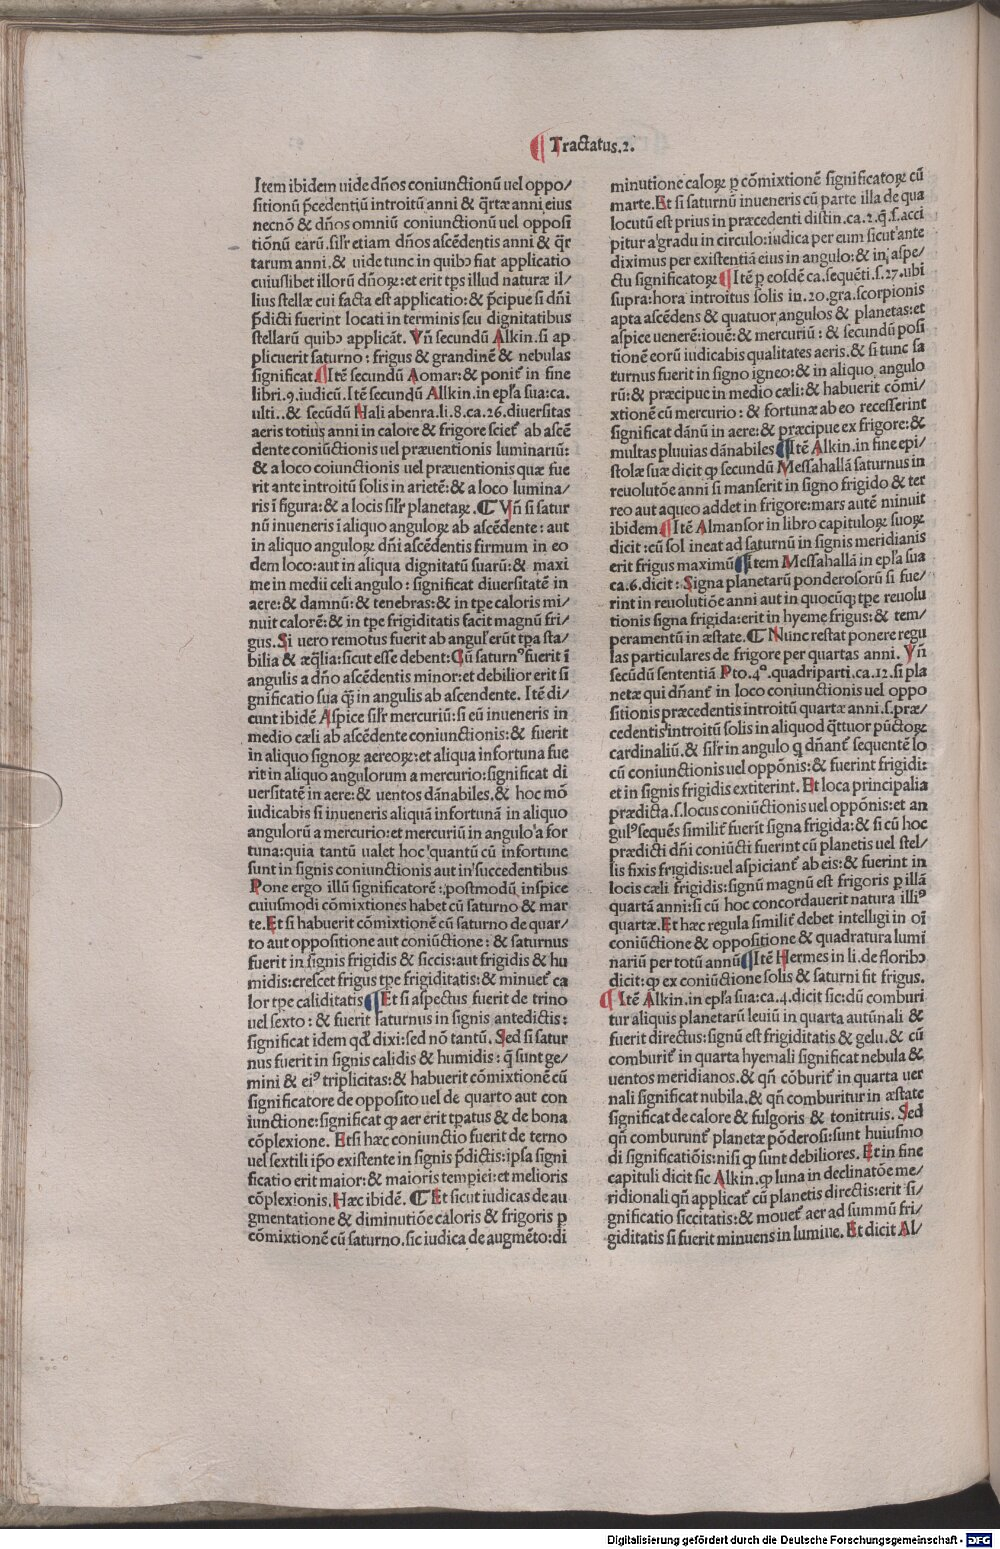 Tractatus.2.
Item ibidem uide dños coniunctionũ uel oppo/
sitionũ p̃cedentiũ introitũ anni & q̃rtæ anni eius
necnõ & dños omniũ coniunctionũ uel oppositi
tiõnũ earũ. sil'r etiam dños ascẽdentis anni & q̃r
tarum anni. & uide tunc in quibꝫ fiat applicatio
cuiuslibet illorũ dñoꝝ: et erit tp̃s illud naturæ il/
lius stellæ cui facta est applicatio: & p̃cipue si dñi
p̃dicti fuerint locati in terminis seu dignitatibus
stellarũ quibꝫ applicãt. Vñ secundũ Alkin. si ap
plicuerit saturno: frigus & grandinẽ & nebulas
significat ¶Itẽ secundũ Aomar: & ponit̃ in fine
libri.9.iudicũ. Itẽ secundũ Allkin. in epl'a sua: ca.
ulti.. & secũdũ Hali abenra. li.8.ca.26. diuersitas
aeris totius anni in calore & frigore sciet̃ ab ascẽ
dente coniũctionis uel præuentionis luminariũ:
& a loco coiunctionis uel præuentionis quæ fue
rit ante introitũ solis in arietẽ: & a loco lumina/
ris ĩ figura: & a locis sil'r planetaꝝ. ¶ Vñ si satur
nũ inueneris ĩ aliquo anguloꝝ ab ascẽdente: aut
in aliquo anguloꝝ dñi ascẽdentis firmum in eo
dem loco: aut in aliqua dignitatũ suarũ: & maxi
me in medii celi angulo: significat diuersitatẽ in
aere: & damnũ: & tenebras: & in tp̃e caloris mi/
nuit calorẽ: & in tp̃e frigiditatis facit magnũ fri/
gus. Si uero remotus fuerit ab angul' erũt tp̃a sta/
bilia & æq̃lia: sicut esse debent: Cũ saturnꝰ fuerit ĩ
angulis a dño ascẽdentis minor: et debilior erit si
gnificatio sua q̃ in angulis ab ascendente. Itẽ di/
cunt ibidẽ Aspice sil'r mercuriũ: si eũ inueneris in
medio cæli ab ascẽdente coniunctionis: & fuerit
in aliquo signoꝝ aereoꝝ: et aliqua infortuna fue
rit in aliquo angulorum a mercurio: significat di
uersitatẽ in aere: & uentos dãnabiles. & hoc mõ
iudicabis si inueneris aliquã infortunã in aliquo
angulorũ a mercurio: et mercuriũ in angulo a for
tuna: quia tantũ ualet hoc quantũ cũ infortune
sunt in signis coniunctionis aut in succedentibus
Pone ergo illũ significatorẽ: postmodũ inspice
cuiusmodi cõmixtiones habet cũ saturno & mar
te. Et si habuerit cõmixtionẽ cũ saturno de quar/
to aut oppositione aut coniũctione: & saturnus
fuerit in signis frigidis & siccis: aut frigidis & hu
midis: crescet frigus tp̃e frigiditatis: & minuet̃ ca
lor tp̃e caliditatis ¶Et si aspectus fuerit de trino
uel sexto: & fuerit saturnus in signis antedictis:
significat idem qd' dixi: sed nõ tantũ. Sed si satur
nus fuerit in signis calidis & humidis: q̃ sunt ge/
mini & eiꝰ triplicitas: & habuerit cõmixtionẽ cũ
significatore de opposito uel de quarto aut con
iunctione: significat ꝙ aer erit tp̃atus & de bona
cõplexione. Etsi hæc coniunctio fuerit de terno
uel sextili ip̃o existente in signis p̃dictis: ipsa signi
ficatio erit maior: & maioris tempiei: et melioris
cõplexionis. Hæc ibidẽ. ¶ Et sicut iudicas de au
gmentatione & diminutiõe caloris & frigoris ꝑ
cõmixtionẽ cũ saturno. sic iudica de augmẽto: di
minutione caloꝝ ꝑ cõmixtionẽ significatoꝝ cũ
marte. Et si saturnũ inueneris cũ parte illa de qua
locutũ est prius in præcedenti distin. ca.2. q̃. s. acci
pitur a gradu in circulo: iudica per eum sicut ante
diximus per existentiã eius in angulo: & in aspe/
ctu significatoꝝ ¶Itẽ ꝑ eosdẽ ca. sequẽti. s. 27. ubi
supra: hora introitus solis in.20.gra.scorpionis
apta ascẽdens & quatuor angulos & planetas: et
aspice uenerẽ: iouẽ: & mercuriũ: & secundũ posi
tionẽ eorũ iudicabis qualitates aeris. & si tunc sa
turnus fuerit in signo igneo: & in aliquo angulo
rũ: & præcipue in medio cæli: & habuerit cõmi/
xtionẽ cũ mercurio: & fortunæ ab eo recesserint
significat dãnũ in aere: & præcipue ex frigore: &
multas pluuias dãnabiles ¶Itẽ Alkin. in fine epi/
stolæ suæ dicit ꝙ secundũ Messahallã saturnus in
reuolutõe anni si manserit in signo frigido & ter
reo aut aqueo addet in frigore: mars autẽ minuit
ibidem ¶Itẽ Almansor in libro capituloꝝ suoꝝ
dicit: cũ sol ineat ad saturnũ in signis meridianis
erit frigus maximũ ¶Item Messahallã in epl'a sua
ca.6.dicit: Signa planetarũ ponderosorũ si fue/
rint in reuolutiõe anni aut in quocũqꝫ tp̃e reuolu
tionis signa frigida: erit in hyeme frigus: & tem/
peramentũ in æstate. ¶ Nunc restat ponere regu
las particulares de frigore per quartas anni. Vñ
secũdũ sententiã Pto.4ᵒ.quadriparti.ca.12.si pla
netæ qui dñant̃ in loco coniunctionis uel oppo
sitionis præcedentis introitũ quartæ anni. s. præ/
cedentis introitũ solis in aliquod q̃ttuor pũctoꝝ
cardinaliũ. & sil'r in angulo q dñant̃ sequentẽ lo
cũ coniunctionis uel oppõnis: & fuerint frigidi:
et in signis frigidis extiterint. Et loca principalia
prædicta. s. locus coniũctionis uel oppõnis: et an
gulꝰ sequẽs similit̃ fuerĩt signa frigida: & si cũ hoc
prædicti dñi coniũcti fuerint cũ planetis uel stel/
lis fixis frigidis: uel aspiciant̃ ab eis: & fuerint in
locis cæli frigidis: signũ magnũ est frigoris ꝑ illã
quartã anni: si cũ hoc concordauerit natura illiꝰ
quartæ. Et hæc regula similit̃ debet intelligi in oĩ
coniũctione & oppositione & quadratura lumĩ
nariũ per totũ annũ ¶Itẽ Hermes in li. de floribꝫ
dicit: ꝙ ex coniũctione solis & saturni fit frigus.
¶Itẽ Alkin. in epl'a sua: ca.4. dicit sic: dũ comburi
tur aliquis planetarũ leuiũ in quarta autũnali &
fuerit directus: signũ est frigiditatis & gelu. & cũ
comburit̃ in quarta hyemali significat nebula &
uentos meridianos. & qñ cõburit̃ in quarta uer
nali significat nubila. & qñ comburitur in æstate
significat de calore & fulgoris & tonitruis. Sed
qñ comburunt̃ planetæ põderosi: sunt huiusmo
di significatiõis: nisi ꝙ sunt debiliores. Et in fine
capituli dicit sic Alkin. ꝙ luna in declinatõe me/
ridionali qñ applicat̃ cũ planetis directis: erit si/
gnificatio siccitatis: & mouet̃ aer ad summũ fri/
giditatis si fuerit minuens in lumine. Et dicit Al/
Digitalisierung gefördert durch die Deutsche Forschungsgemeinschaft - DFG